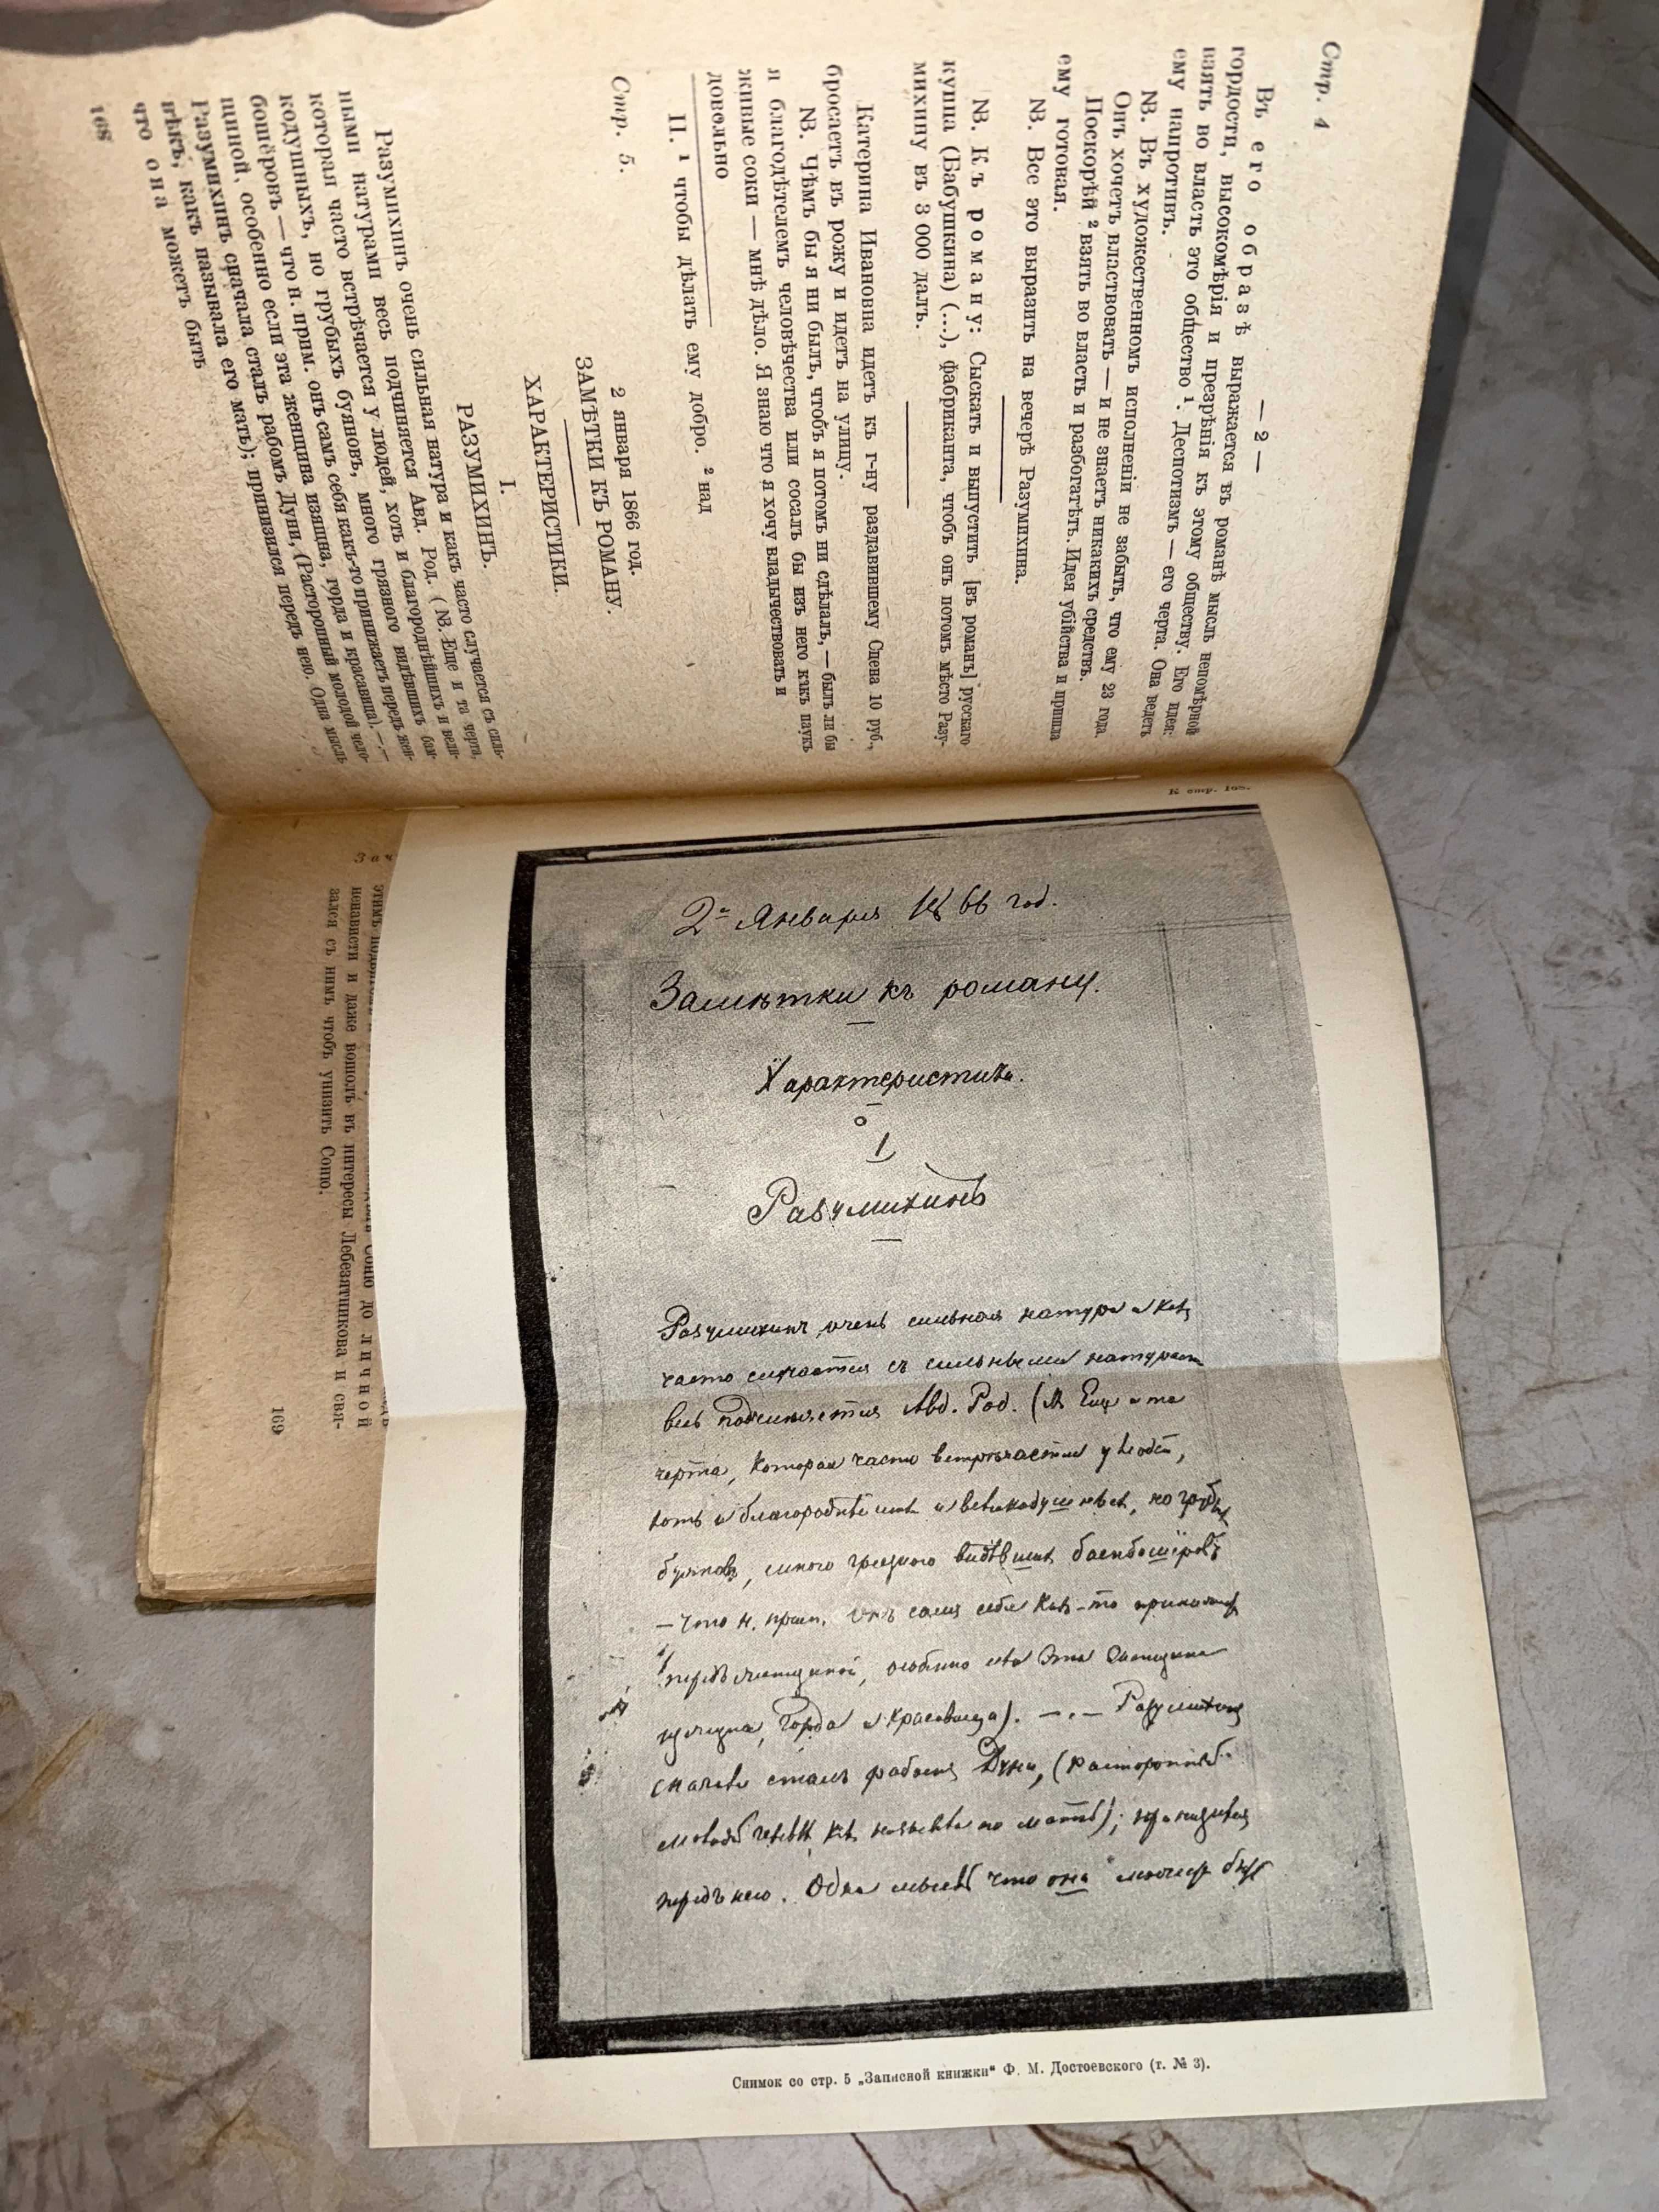 Стр. 4
— 2 —
Въ его образѣ выражается въ романѣ мысль непомѣрной
гордости, высокомѣрія и презрѣнія къ этому обществу. Его идея:
взять во власть это общество ¹. Деспотизмъ — его черта. Она ведетъ
ему напротивъ.
NB. Въ художественномъ исполненіи не забыть, что ему 23 года.
Онъ хочетъ властвовать — и не знаетъ никакихъ средствъ.
Поскорѣй ² взять во власть и разбогатѣть. Идея убійства и пришла
ему готовая.
NB. Все это выразить на вечерѣ Разумихина.
NB. Къ роману: Сыскать и выпустить [въ романъ] русскаго
купца (Бабушкина) (...), фабриканта, чтобъ онъ потомъ мѣсто Разу-
михину въ 3 000 далъ.
Катерина Ивановна идетъ къ г-ну раздавившему Сцена 10 руб.,
бросаетъ въ рожу и идетъ на улицу.
NB. Чѣмъ бы я ни былъ, чтобъ я потомъ ни сдѣлалъ, — былъ ли бы
я благодѣтелемъ человѣчества или сосалъ бы изъ него какъ паукъ
живые соки — мнѣ дѣло. Я знаю что я хочу владычествовать и
довольно
II. ¹ чтобы дѣлать ему добро. ² над
Стр. 5.
2 января 1866 год.
ЗАМѢТКИ КЪ РОМАНУ.
ХАРАКТЕРИСТИКИ.
I.
РАЗУМИХИНЪ.
Разумихинъ очень сильная натура и какъ часто случается съ силь-
ными натурами весь подчиняется Авд. Род. (NB. Еще и та черта,
которая часто встрѣчается у людей, хоть и благороднѣйшихъ и вели-
кодушныхъ, но грубыхъ буяновъ, много грязного видѣвшихъ бам-
бошёровъ — что н. прим. онъ самъ себя какъ-то принижаетъ передъ жен-
щиной, особенно если эта женщина изящна, горда и красавица). — . —
Разумихинъ сначала сталъ рабомъ Дуни, (Расторопный молодой чело-
вѣкъ, какъ называла его мать); принизился передъ нею. Одна мысль
что она можетъ быть
168
К стр. 168.
2ᵒ Января 1866 год.
Замѣтки къ роману.
Характеристики.
1
Разумихинъ
Разумихинъ очень сильная натура и какъ
часто случается съ сильными натурами
весь подчиняется Авд. Род. (NB Еще и та
черта, которая часто встрѣчается у людей,
хоть и благороднѣйшихъ и великодушныхъ, но грубыхъ
буяновъ, много грязного видѣвшихъ бамбошёровъ
— что н. прим. онъ самъ себя какъ-то принижаетъ
передъ женщиной, особенно если эта женщина
изящна, горда и красавица). — . — Разумихинъ
сначала сталъ рабомъ Дуни, (расторопный
молодой человѣкъ, какъ называла его мать); принизился
передъ нею. Одна мысль что она можетъ быть
Снимок со стр. 5 „Записной книжки“ Ф. М. Достоевского (т. № 3).
Соню до личной
ненависти и даже вошолъ въ интересы Лебезятникова и свя-
зался съ нимъ чтобъ унизить Соню.
169